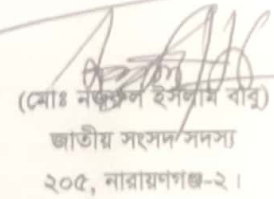 (মোঃ নজরুল ইসলাম বাবু)
জাতীয় সংসদ সদস্য
২০৫, নারায়ণগঞ্জ-২।